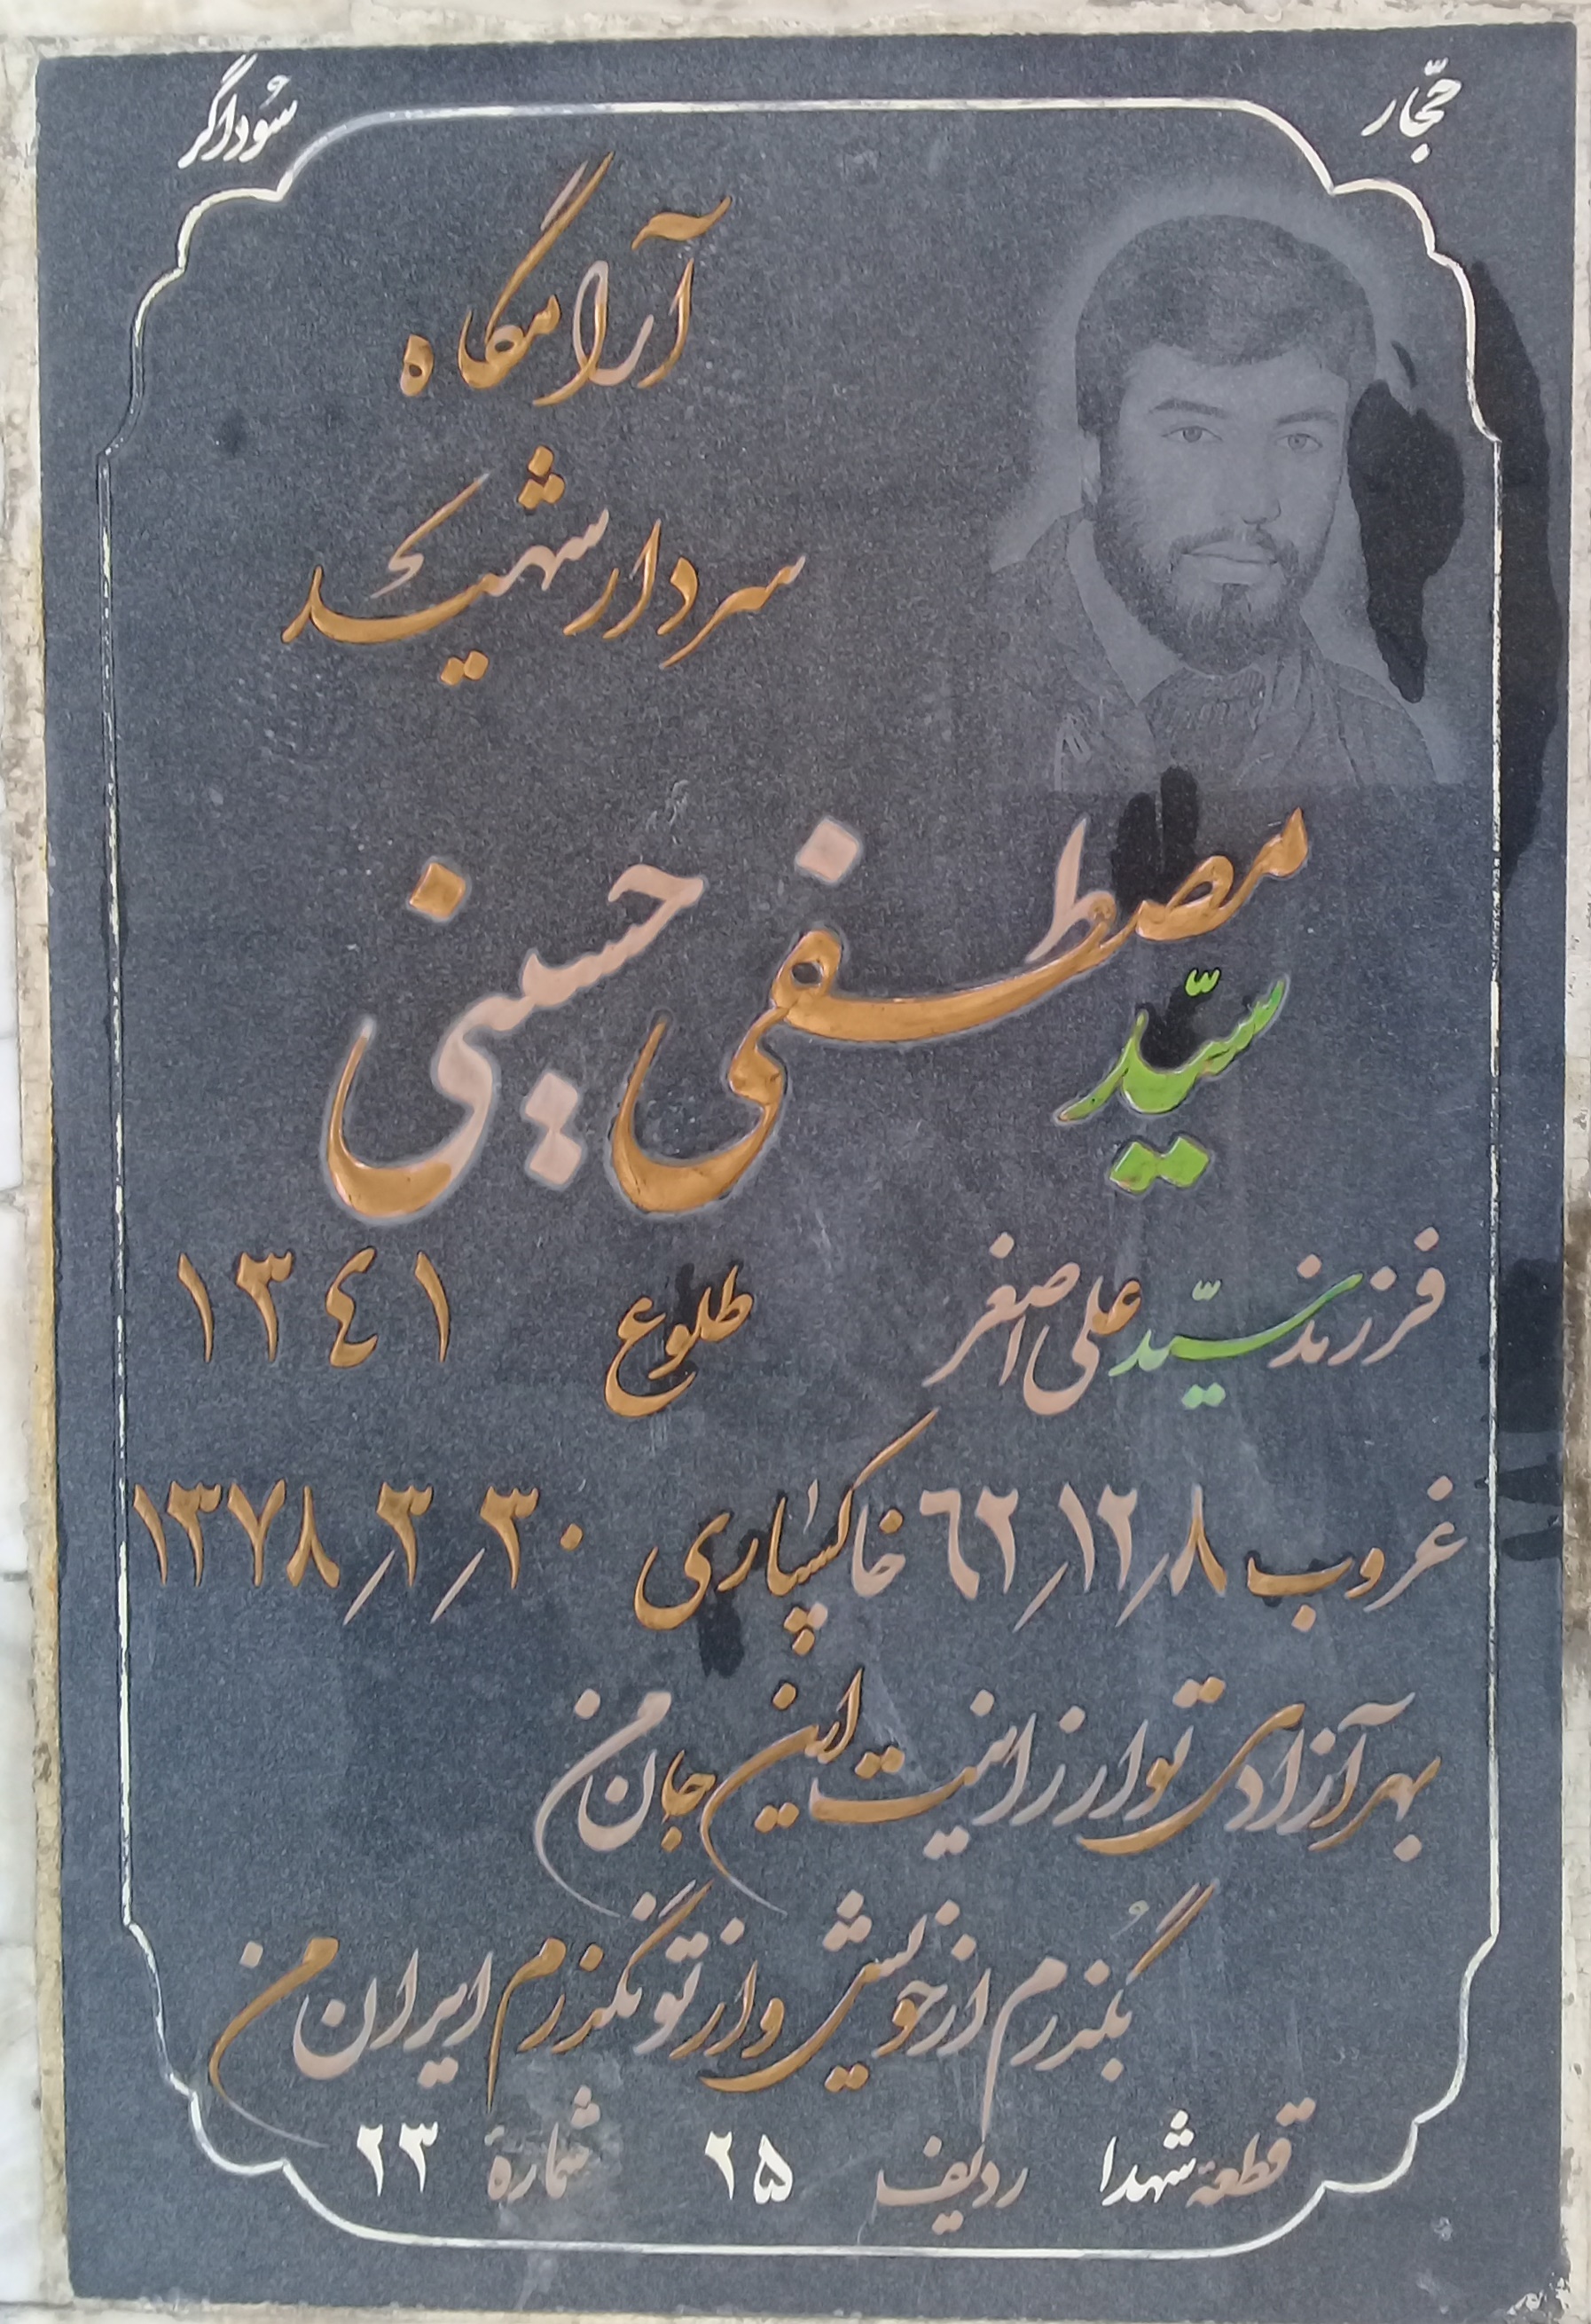 حجّار سوداگر
آرامگاه
سردار شهید
سیّد مصطفی حسینی
فرزند سیّد علی اصغر طلوع ١٣٤١
غروب ٨/١٢/٦٢ خاکسپاری ٣٠/٣/١٣٧٨
بهر آزادی تو ارزانیت این جان من
بگذرم از خویش و از تو نگذرم ایران من
قطعۀ شهدا ردیف ۲۵ شمارۀ ۲۳